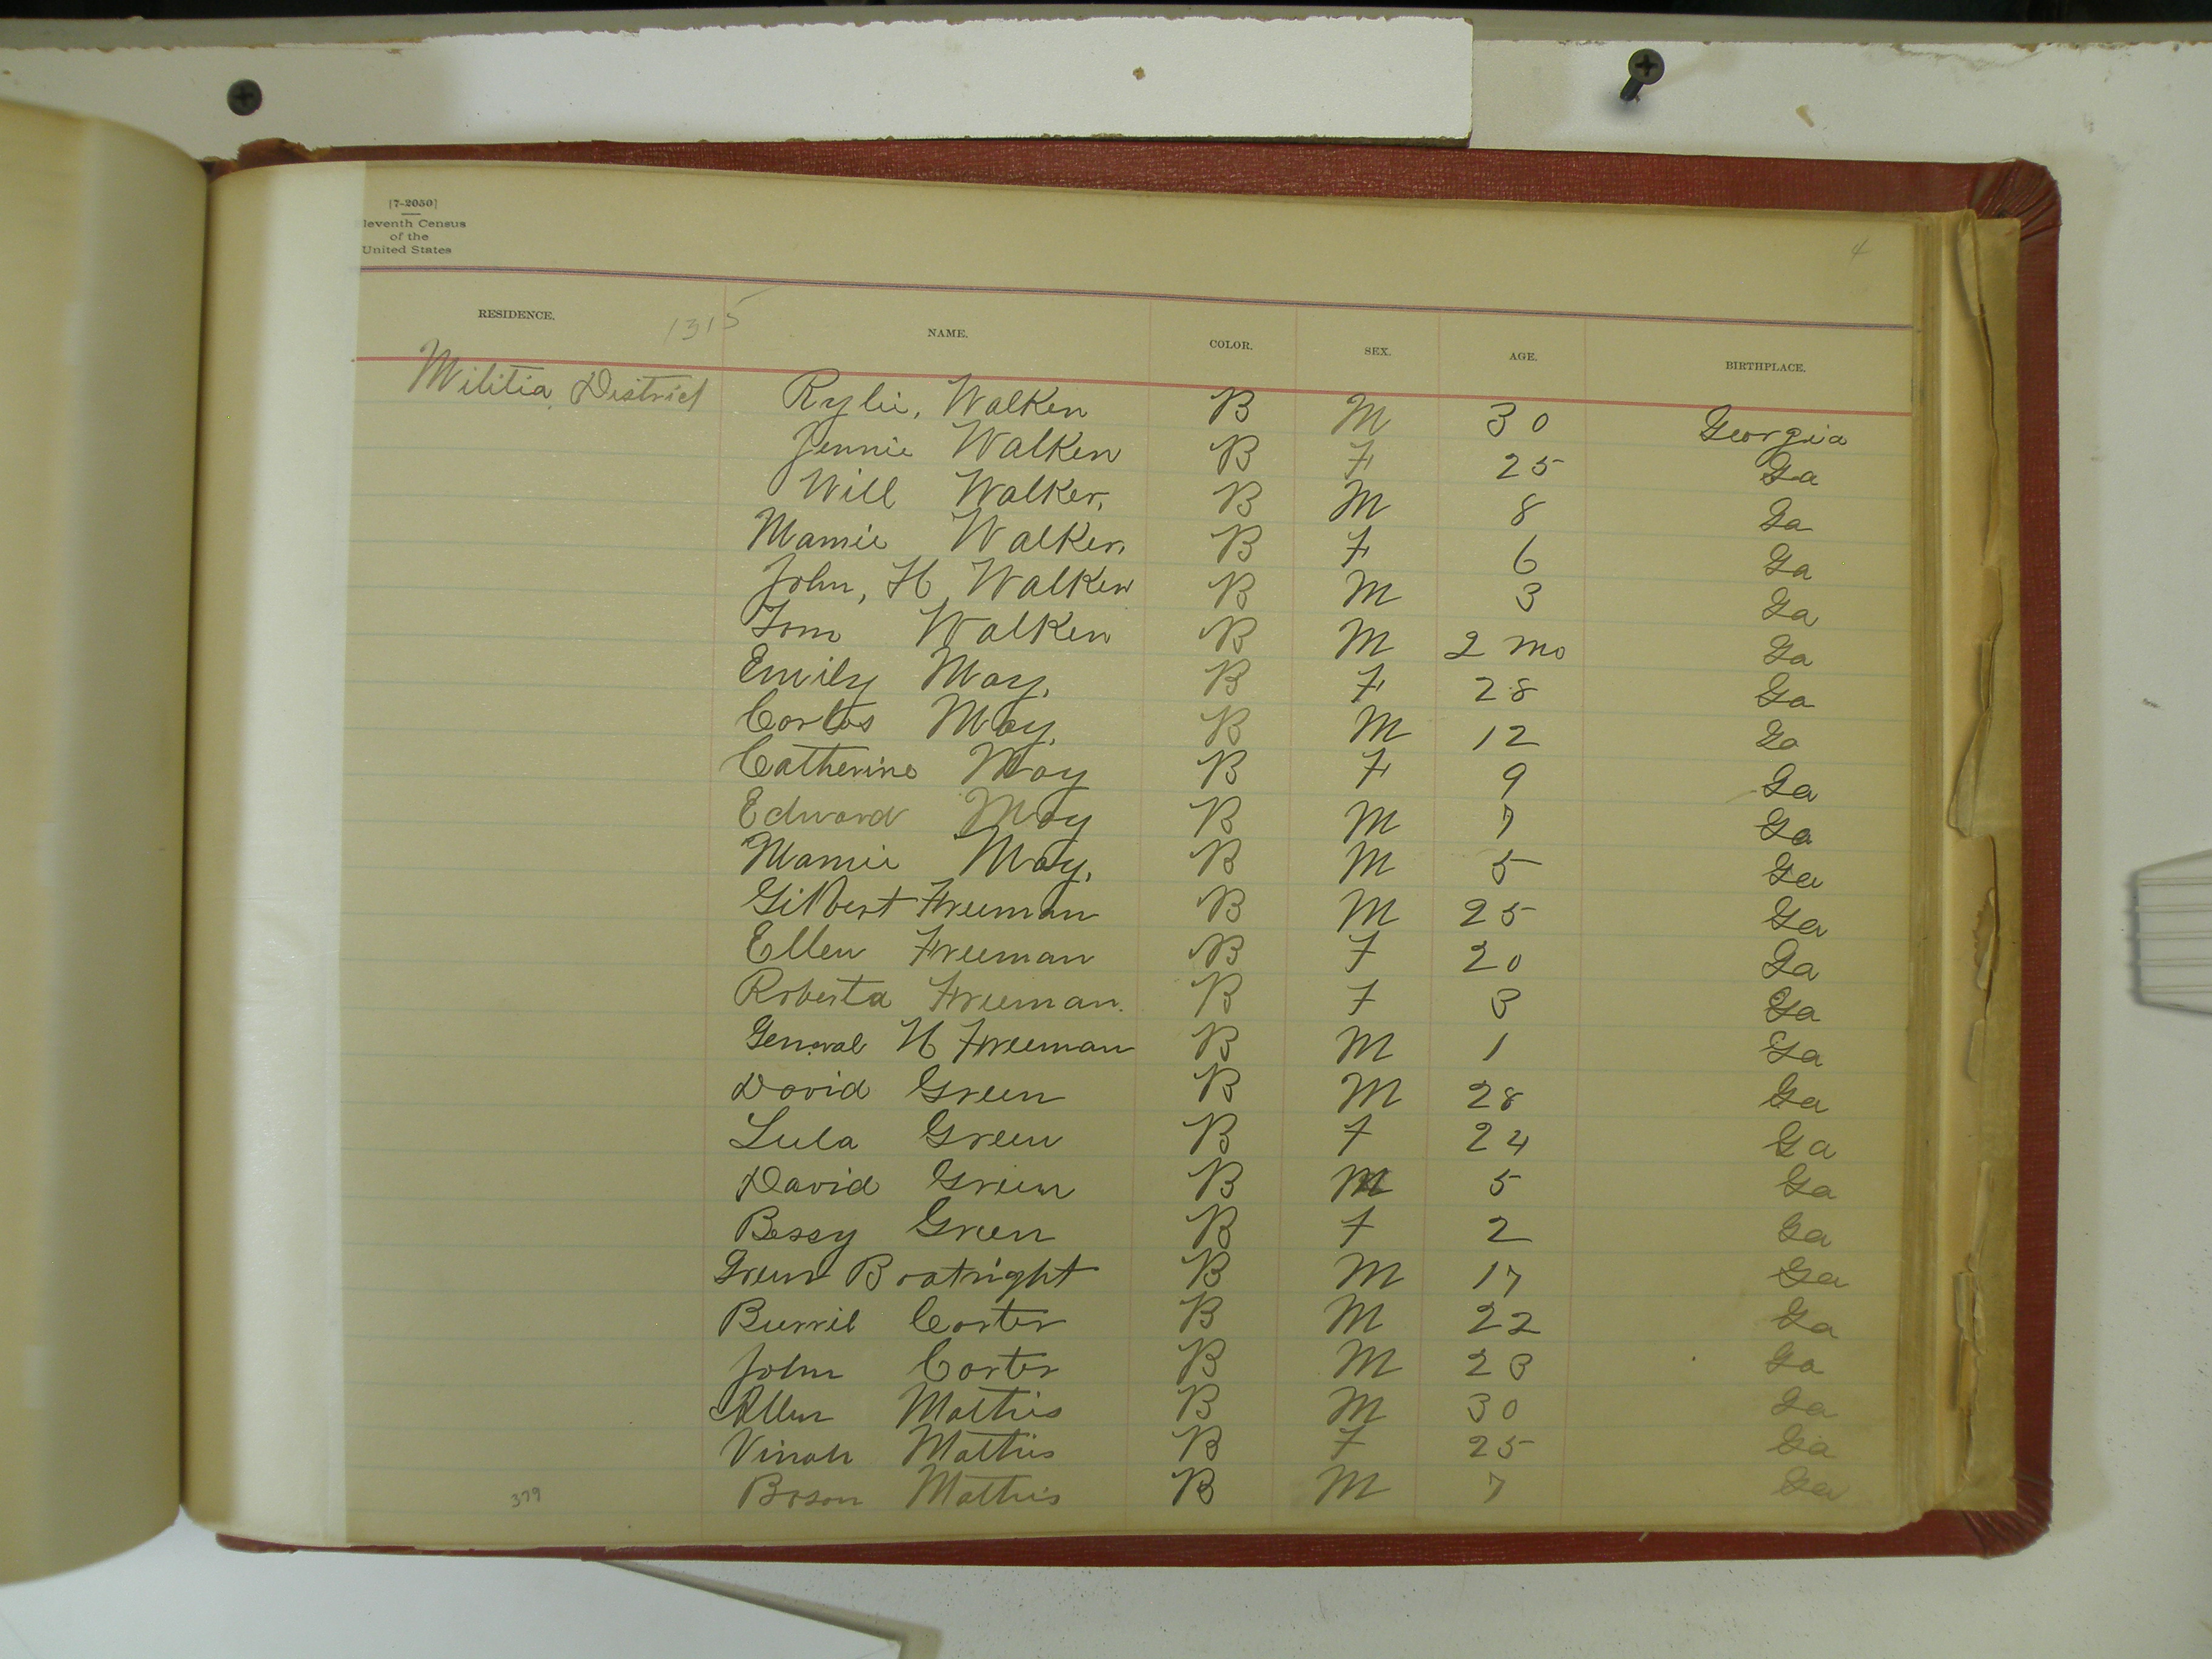 [7-2050]
leventh Census
of the
United States
4
RESIDENCE. 1315 NAME. COLOR. SEX. AGE. BIRTHPLACE.
Militia District Rylie, Walker B M 30 Georgia
Jennie Walker B F 25 Ga
Will Walker, B M 8 Ga
Mamie Walker, B F 6 Ga
John, H, Walker B M 3 Ga
Tom Walker B M 2 mo Ga
Emily May, B F 28 Ga
Carlos May, B M 12 Ga
Catherine May B F 9 Ga
Edward May B M 7 Ga
Mamie May, B M 5 Ga
Gilbert Freeman B M 25 Ga
Ellen Freeman B F 20 Ga
Roberta Freeman. B F 3 Ga
General H Freeman B M 1 Ga
David Green B M 28 Ga
Lula Green B F 24 Ga
David Green B M 5 Ga
Bessy Green B F 2 Ga
Green Boatright B M 17 Ga
Burril Carter B M 22 Ga
John Carter B M 23 Ga
Allen Mathis B M 30 Ga
Vinah Mathis B F 25 Ga
379 Boson Mathis B M 7 Ga